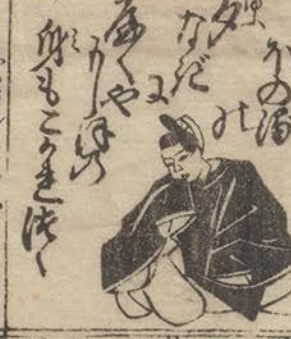 ほの浦
の夕
なぎ
に
やくや
もしほの
身もこがれつゝ